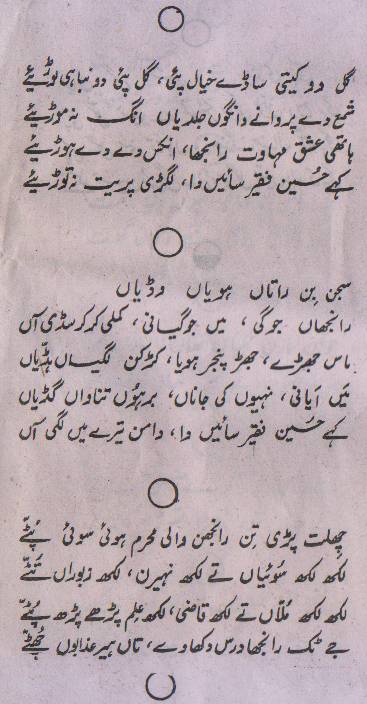 گل دو کیتی ساڈے خیال پئی، گل پئی دو نباہی لوڑیئے
شمع دے پروانے وانگوں جلدیاں انگ نہ موڑیئے
ہاتھی عشق مہاوت رانجھا، انکس دے دے ہوڑیئے
کہے حُسین فقیر سائیں دا، لگڑی پریت نہ توڑیئے
سجن بِن راتاں ہویاں وڈیاں
رانجھاں جوگی، میں جوگیانی، کملی کر کر سڈی آں
ماس جھڑے، جھڑ پنجر ہویا، کڑکن لگیاں ہڈیاں
مَیں اَیانی، نہیوں کی جاناں، برہوں تناواں گڈیاں
کہے حُسین فقیر سائیں دا، دامن تیرے میں لگی آں
چھلت پڑی تن رانجھن والی محرم ہوئی سوئی پُٹّے
لکھ لکھ سُوئیاں تے لکھ نہیرن، لکھ زبوراں تُٹّے
لکھ لکھ مُلّاں تے لکھ قاضی، لکھ عِلم پڑھے پڑھ
جے ٹک رانجھا درس دکھاوے، تاں ہیر عذابوں چُھٹّے